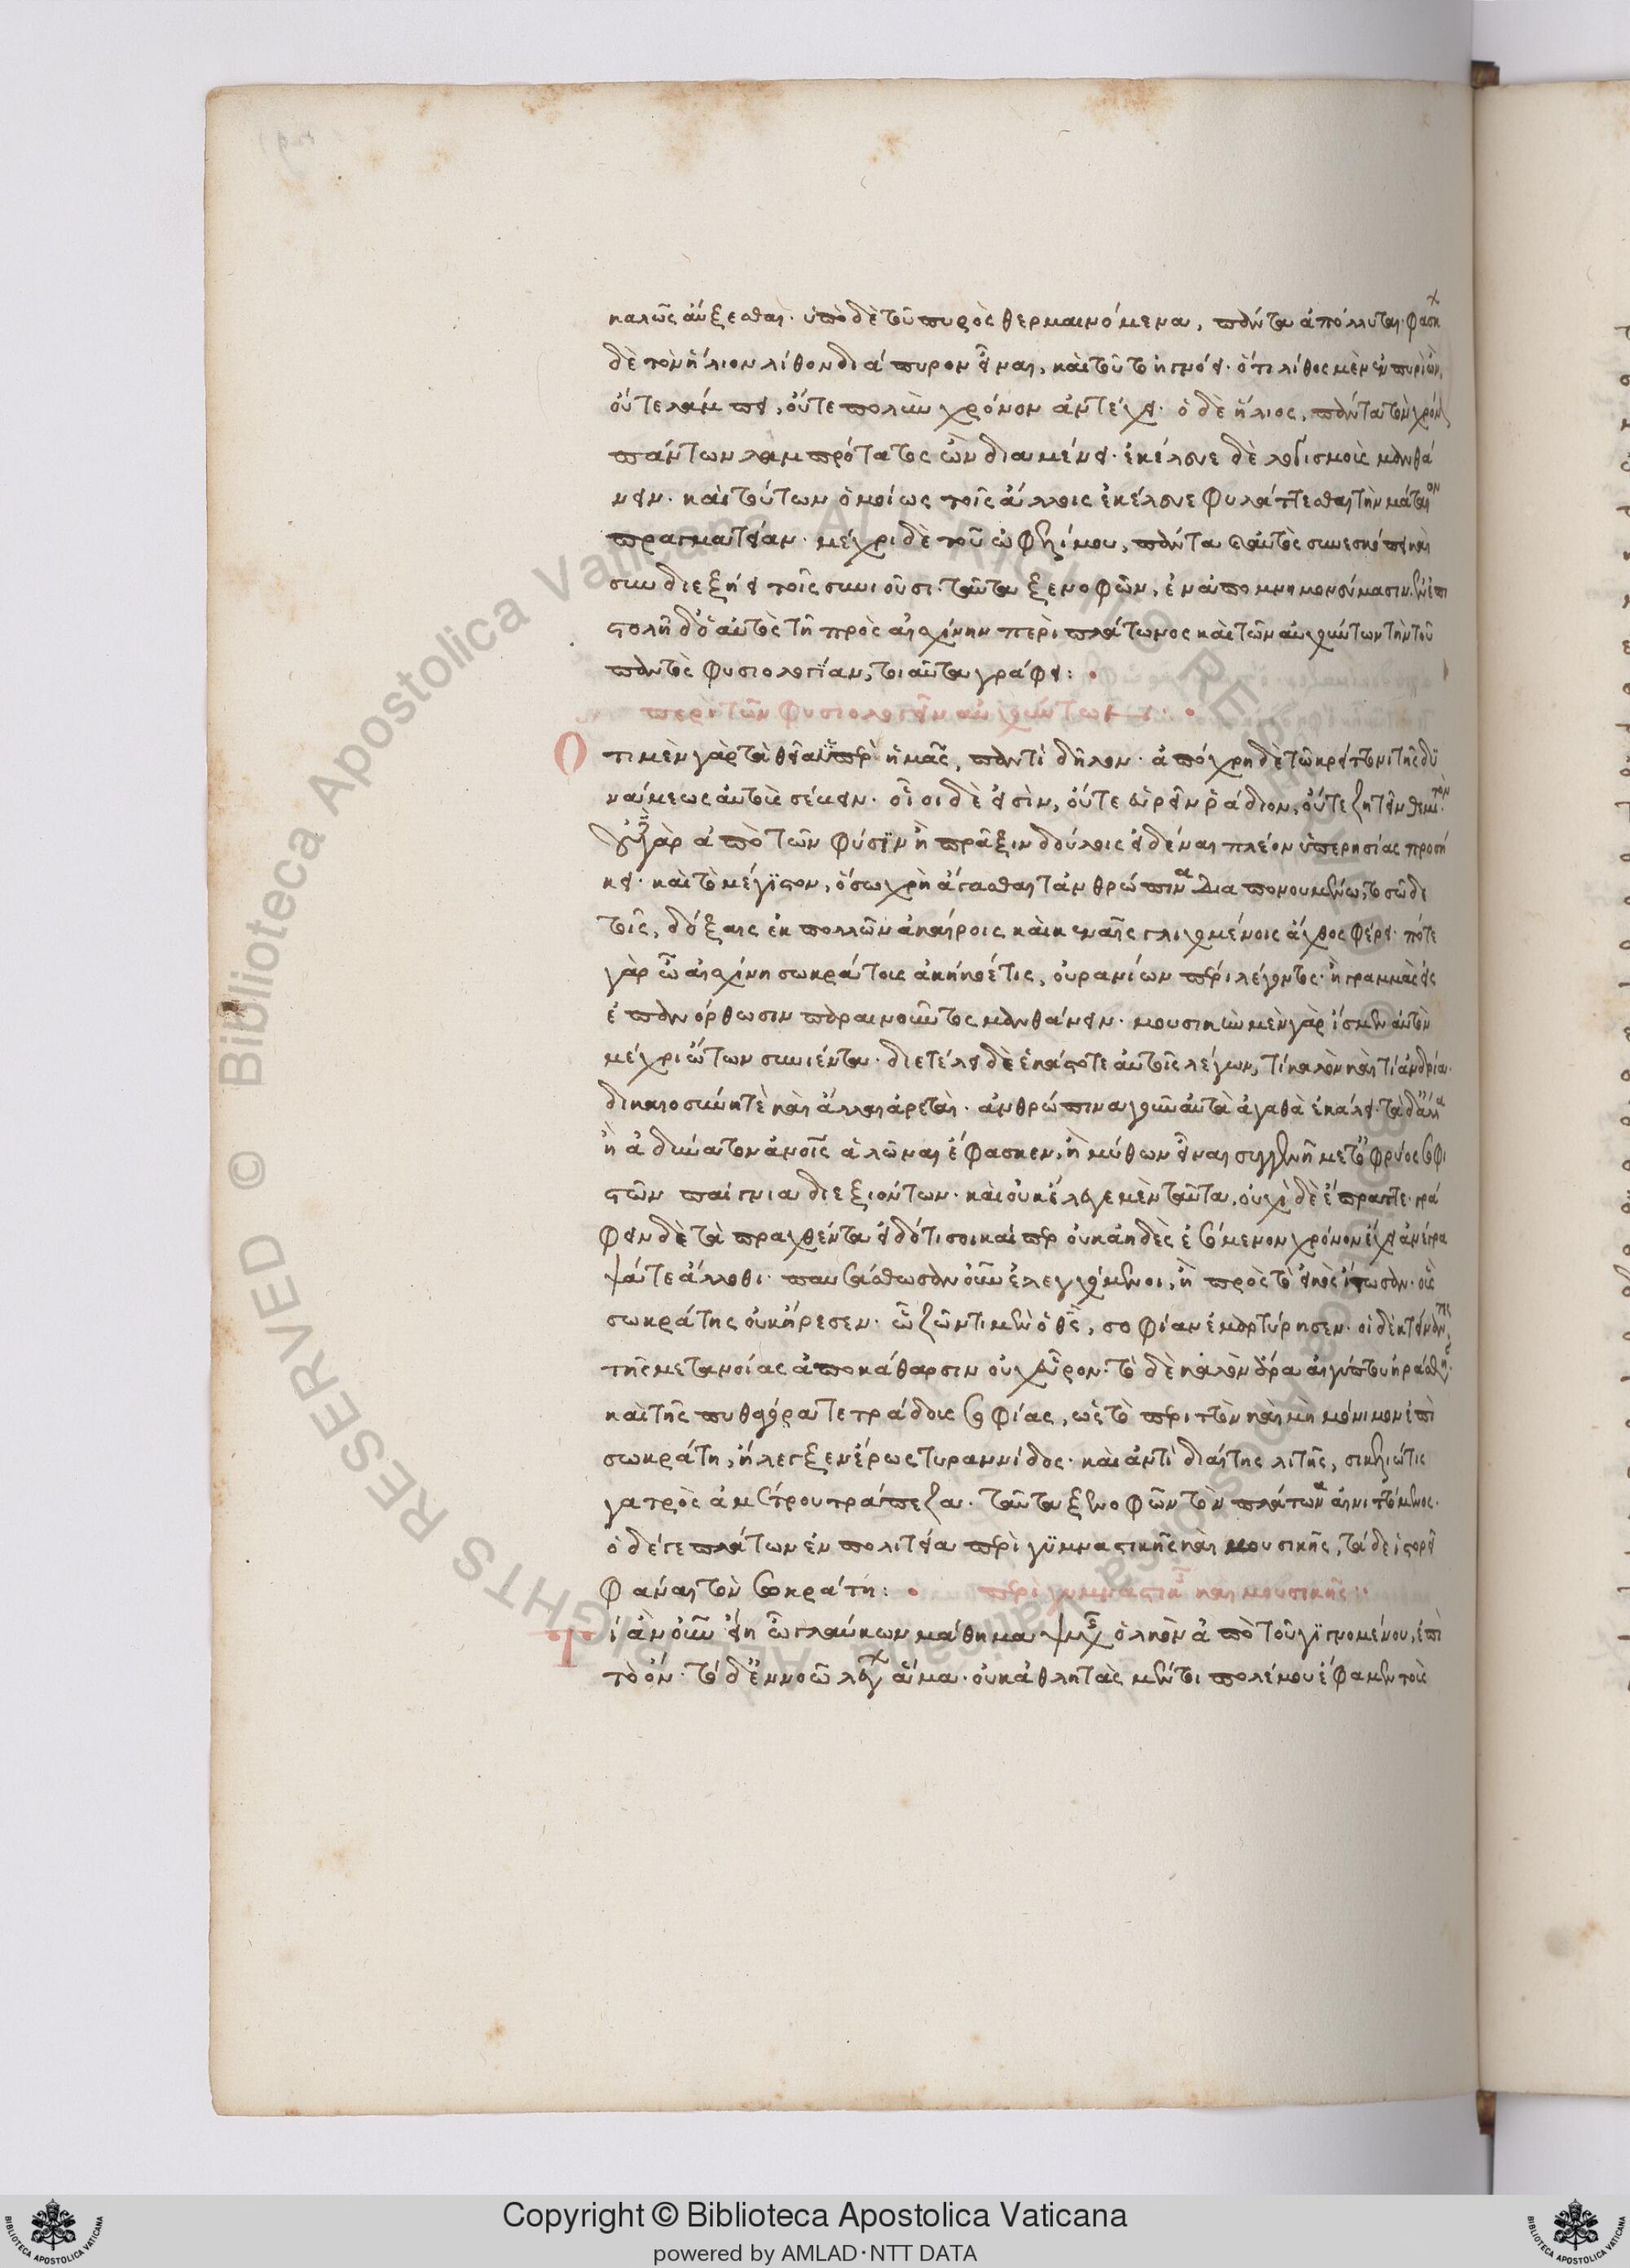 καλῶς αὔξεσθαι· ὑπὸ δὲ τοῦ πυρὸς θερμαινόμενα, πάντα ἀπόλλυται· φάσκ
δὲ τὸν ἥλιον λίθον διάπυρον εἶναι, καὶ τοῦτο ἠγνόει· ὅτι λίθος μὲν ἐν πυρὶ ὢν,
οὔτε λάμπει, οὔτε πολὺν χρόνον ἀντέχει· ὁ δὲ ἥλιος, πάντα τὸν χρόν
πάντων λαμπρότατος ὢν διαμένει· ἐκέλευε δὲ λογισμοὺς μανθά
νειν· καὶ τούτων ὁμοίως τοῖς ἄλλοις ἐκέλευε φυλάττεσθαι τὴν μάταιον
πραγματείαν· μέχρι δὲ τοῦ ὠφελίμου, πάντα καὶ αὐτὸς συνεσκόπει καὶ
συνδιεξῄει τοῖς συνοῦσι· ταῦτα ξενοφῶν, ἐν ἀπομνημονεύμασιν. ἐν ἐπι
στολῇ δὲ ὁ αὐτὸς τῇ πρὸς αἰσχίνην περὶ πλάτωνος καὶ τῶν αὐχούντων τὴν τοῦ
παντὸς φυσιολογίαν, τοιαῦτα γράφει:
περὶ τῶν φυσιολογεῖν αὐχούντων
Ὅτι μὲν γὰρ τὰ θεῖα ὑπὲρ ἡμᾶς, παντὶ δῆλον· ἀπόχρη δὲ τῷ κρείττονι τῆς δυ
νάμεως αὐτοὺς σέβειν· οἷοι δὲ εἰσὶν, οὔτε εὑρεῖν ῥᾴδιον, οὔτε ζητεῖν θεμιτόν·
κὶ· καὶ τὸ μέγιστον, ὅσῳ χρὴ ἄγασθαι τἀνθρώπινα διαπονουμένῳ, τοσῷδε
τοῖς, δόξαις ἐκ πολλῶν ἀκαίροις καὶ κεναῖς γλιχομένοις ἄχθος φέρει· πότε
γὰρ ὦ αἰσχίνη σωκράτους ἀκήκοέ τις, οὐρανίων πέρι λέγοντος· ἢ γραμμὰς εἰς
ἐπανόρθωσιν παραινοῦντος μανθάνειν· μουσικὴν μὲν γὰρ ἴσμεν αὐτὸν
μέχρι ὤτων συνιέντα· διετέλει δὲ ἑκάστοτε αὐτοῖς λέγων, τί καλὸν καὶ τί ἀνδρία·
δικαιοσύνη τὲ καὶ ἄλλαι ἀρεταί· ἀνθρώπινα γοῦν αὐτὰ ἀγαθὰ ἐκάλει· τὰ δ' ἄλλα
ἢ ἀδύνατον ἀνοῖς ἁλῶναι ἔφασκεν, ἢ μύθων εἶναι συγγενῆ μετ' ὀφρύος σοφι
στῶν παίγνια διεξιόντων· καὶ οὐκ ἔλεγε μὲν ταῦτα, οὐχὶ δὲ ἔπραττε· γρά
φειν δὲ τὰ πραχθέντα εἰδότι σοι καίπερ οὐκ ἀηδὲς ἐσόμενον χρόνον ἔχει ἀνέγρα
ψά τε ἄλλοθι· παυσάσθωσαν οὖν ἐλεγχόμενοι, ἢ πρὸς τὸ εἰκὸς ἴτωσαν· οἷς
σωκράτης οὐκ ἤρεσεν· ᾧ ζῶντι μὲν ὁ θς, σοφίαν ἐμαρτύρησεν· οἱ δὲ κτείναντες
τῆς μετανοίας ἀποκάθαρσιν οὐχ εὗρον· τὸ δὲ καλὸν ἄρα αἰγύπτου ἠράσθης·
καὶ τῆς πυθαγόρα τετράδους σοφίας, ὡς τὸ περιττὸν καὶ μὴ μόνιμον ἐπὶ
σωκράτη, ἤλεγξεν ἔρως τυραννίδος· καὶ ἀντὶ διαίτης λιτῆς, σικελιώτις
γατρὸς ἀμέτρου τράπεζα· ταῦτα ξενοφῶν τὸν πλάτωνα αἰνιττόμενος·
ὁ δέ γε πλάτων ἐν πολιτεία περὶ γυμναστικῆς καὶ μουσικῆς, τάδε ἱστορεῖ
φάναι τὸν σωκράτη: περὶ γυμναστικῆς καὶ μουσικῆς:
Τί ἂν οὖν εἴη ὦ γλαύκων μάθημα ψυχῆς ὁλκὸν ἀπὸ τοῦ γιγνομένου, ἐπὶ
τὸ ὄν· τόδ' ἐννοῶ λέγων ἅμα· οὐκ ἀθλητὰς μέντοι πολέμου ἔφαμεν τοὺς
Copyright © Biblioteca Apostolica Vaticana
powered by AMLAD·NTT DATA